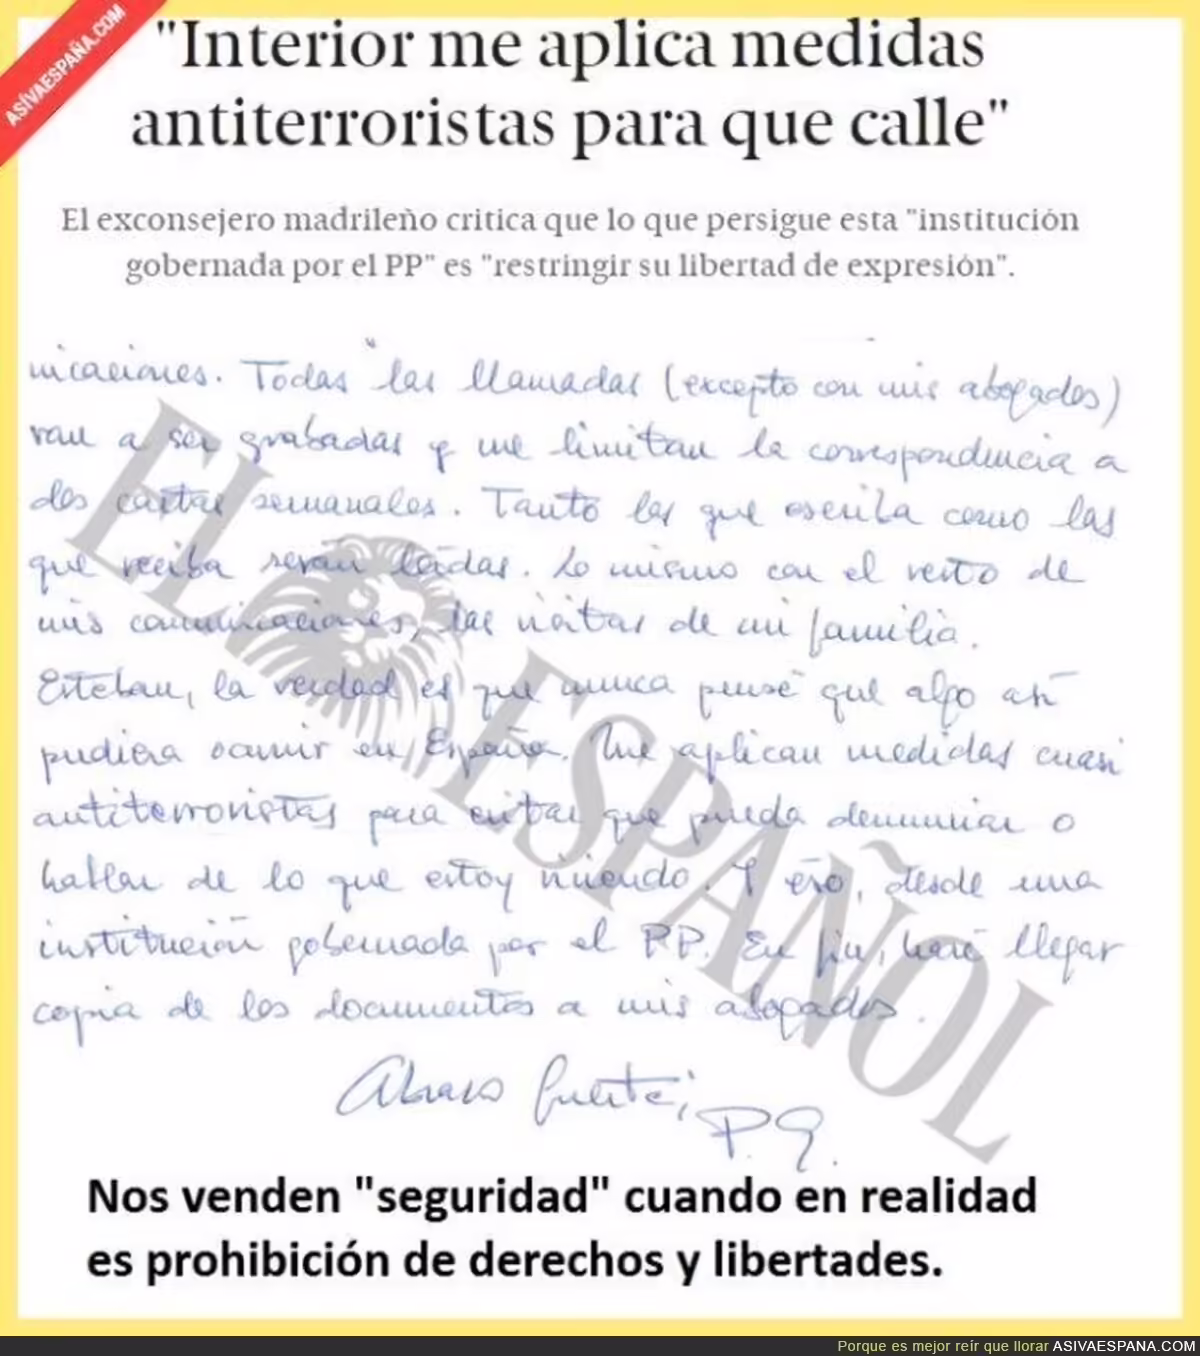 ASÍVAESPAÑA.COM
"Interior me aplica medidas
antiterroristas para que calle"
El exconsejero madrileño critica que lo que persigue esta "institución
gobernada por el PP" es "restringir su libertad de expresión".
nicaciones. Todas las llamadas (excepto con mis abogados)
van a ser grabadas y me limitan la correspondencia a
dos cartas semanales. Tanto las que escriba como las
que reciba serán leídas. Lo mismo con el resto de
mis comunicaciones, las visitas de mi familia.
Esteban, la verdad es que nunca pensé que algo así
pudiera ocurrir en España. Me aplican medidas cuasi
antiterroristas para evitar que pueda denunciar o
hablar de lo que estoy viviendo. Y eso, desde una
institución gobernada por el PP. En fin, haré llegar
copia de los documentos a mis abogados.
EL ESPAÑOL
P.
Nos venden "seguridad" cuando en realidad
es prohibición de derechos y libertades.
Porque es mejor reír que llorar ASIVAESPANA.COM